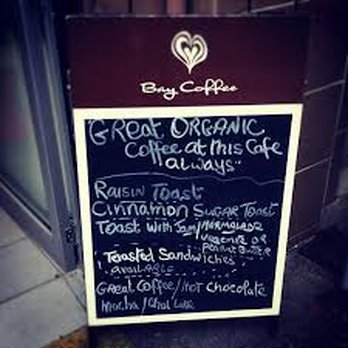 Bay Coffee
"GREAT ORGANIC
Coffee at this Cafe
always"
RAISIN TOAST
Cinnamon SUGAR TOAST
TOAST with Jam/MARMALADE
VEGEMITE OR
PEANUT BUTTER
TOASTED SANDWICHES
AVAILABLE
GREAT COFFEE/HOT CHOCOLATE
Mocha/Chai Latte